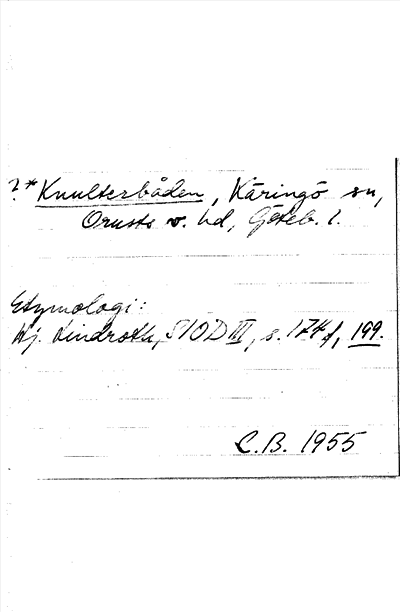 ?*Knulterbåden, Käringö sn,
Orusts v. hd, Göteb. l.
Etymologi:
Hj. Lindroth, SIOD III, s. 174 f, 199.
C.B. 1955